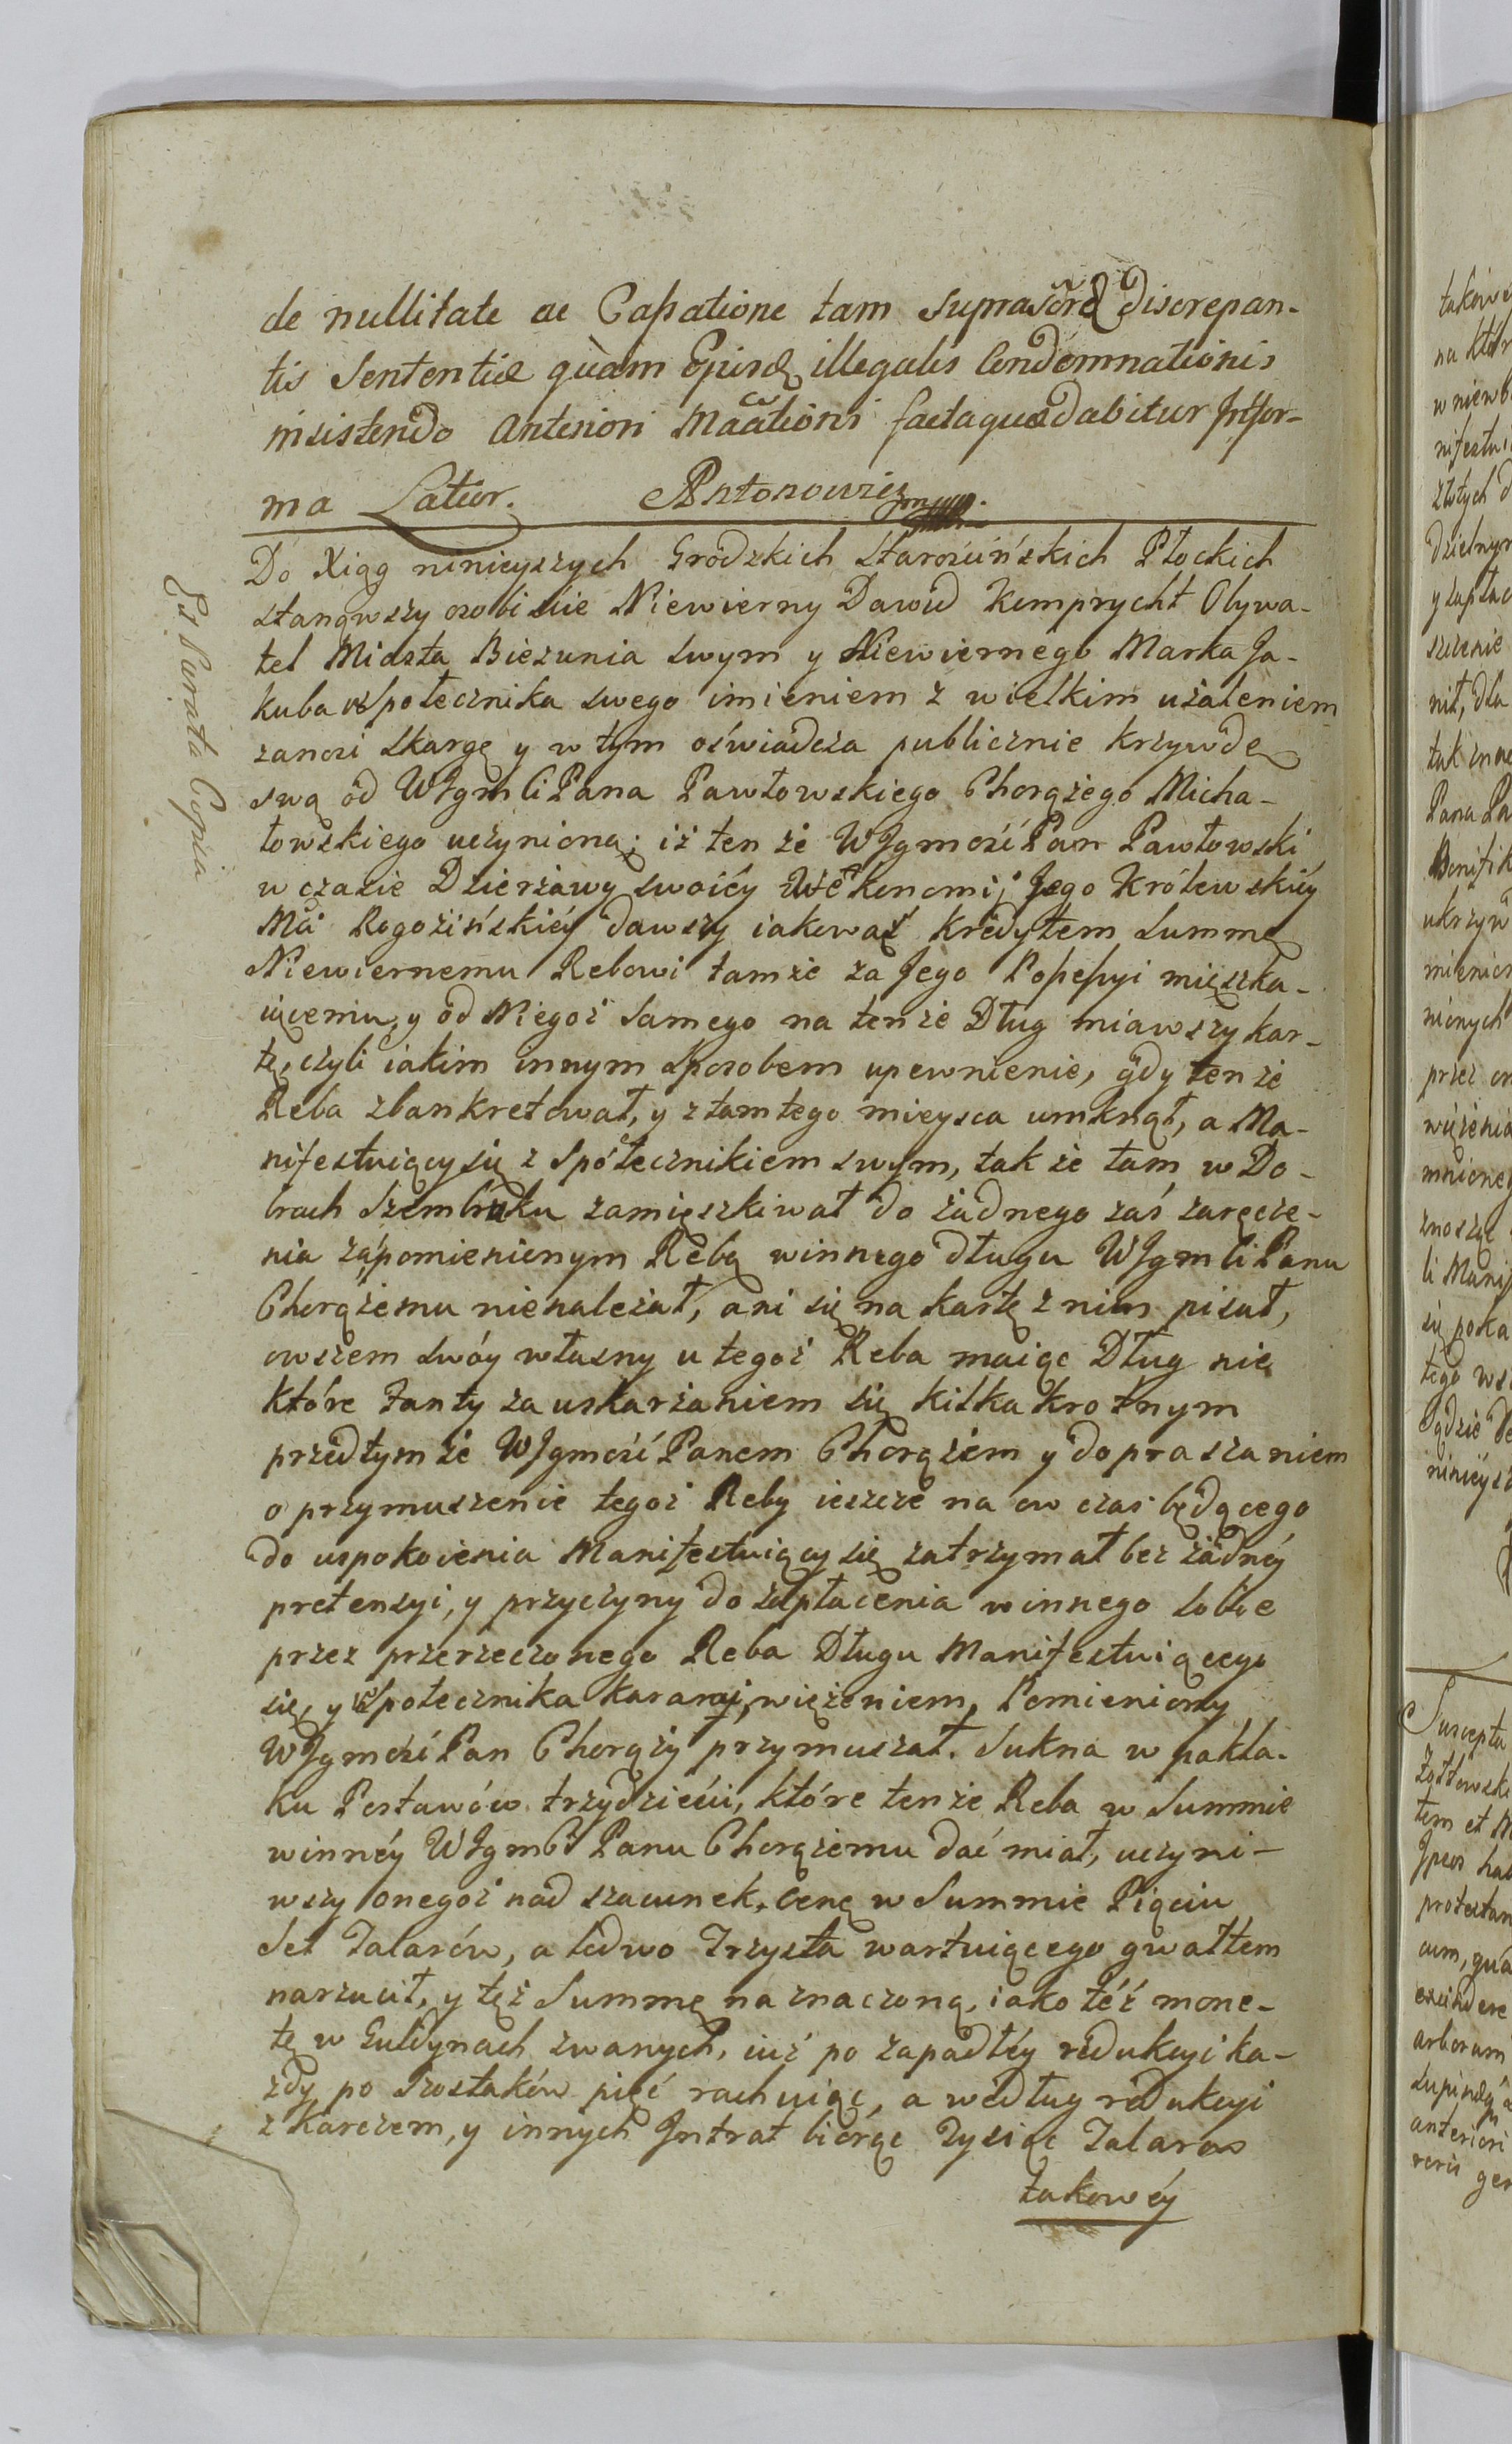 de nullitate ac Cassatione tam Suprascrẽ discrepan-
tis Sententiæ quàm illegalis Condemnationis
insistendo Anteriori Mãationi factaquæ dabitur Infor-
ma Latior. Antonowicz mpp.
Est Parata Copia
Do Xiąg ninieyszych Grodzkich Starościńskich Płockich
stanąwszy osobiscie Niewierny Dawid Komprycht Obywa-
tel Miasta Bieżunia swym y Niewiernego Marka Ja-
kuba wspołecznika swego imieniem z wielkim użaleniem
zanosi skargę y w tym oświadcza publicznie krzywdę
swą od WJgmści Pana Pawłowskiego Chorążego Micha-
łowskiego uczynioną; iż ten że WJgmość Pan Pawłowski
w czasie Dzierżawy swoiéy Wekonomij Jego Królewskiéy
Mći Rogozińskiéy dawszy iakowąś kredytem Summę
Niewiernemu Rebowi tamże za Jego Possessyi mięszka-
iącemu, y od Niegoż samego na tenże Dług miawszy kar-
tę, czyli iakim innym sposobem upewnienie, gdy tenże
Reba zbankretował, y z tamtego mieysca umknął, a Ma-
nifestuiący się z Spółecznikiem swym, tak że tam w Do-
brach Szembruku zamięszkiwał do żadnego zaś zaręcze-
nia zapomienionym Rebą winnego długu WJgmści Panu
Chorążemu nienależał, ani się na kartę z nim pisał,
owszem swóy własny u tegoż Reba maiąc Dług nie
które Fanty za uskarżaniem się kilkakrotnym
przed tym że WJgmość Panem Chorążem y dopraszaniem
o przymuszenie tegoż Reby ieszcze na ow czas będącego
do uspokoienia Manifestuiący się zatrzymał bez żadnéy
pretensyi, y przyczyny do zapłacenia winnego sobie
przez przerzeczonego Reba Długu Manifestuiącego
się, y wspołecznika więzieniem, Pomieniony
WJgmość Pan Chorąży przymuszał. Sukna w pakła-
ku Postawów trzydzieści, które tenże Reba w Summie
winnéy WJgmści Panu Chorążemu dać miał, uczyni-
wszy onegoż nad szacunek, cenę w Summie Pięciu
Set Talarów, a ledwo Trzysta wartuiącego gwałtem
narzucił, y tęż Summę naznaczoną, iako téż mone-
tę w Guldynach zwanych, iuż po zapadłéy redukcyi ka-
żdy po Szostaków pięć rachuiąc, a według redukcyi
z Karczem, y innych Intrat biorąc Tysiąc Talarow
takowéy